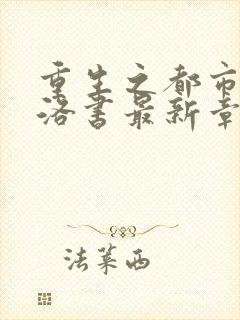 重生之都市
洛书最新章
法莱西